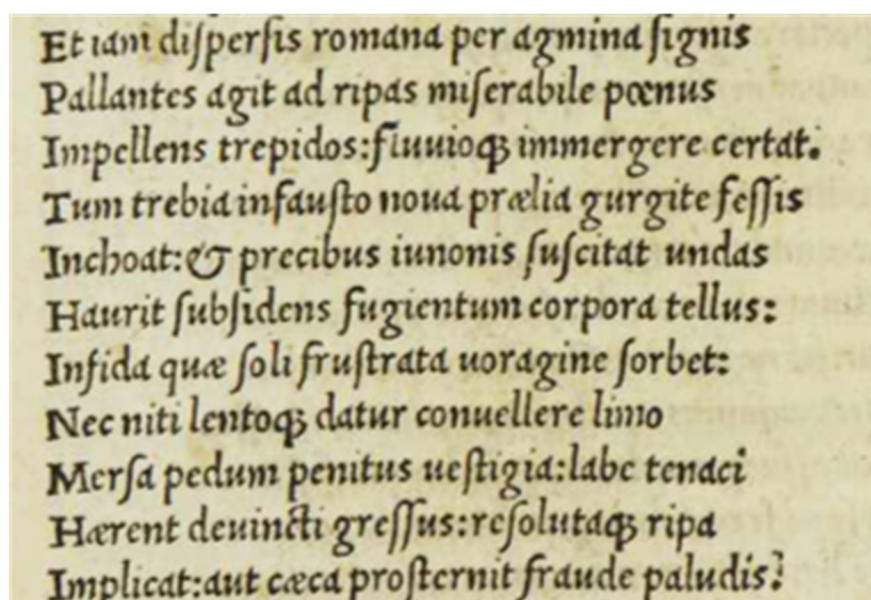 Et iam diſperſis romana per agmina ſignis
Pallantes agit ad ripas miſerabile pœnus
Impellens trepidos:fluuioqꝫ immergere certat.
Tum trebia infauſto noua prælia gurgite feſſis
Inchoat:& precibus iunonis ſuſcitat undas
Haurit ſubſidens fugientum corpora tellus:
Infida quæ ſoli fruſtrata uoragine ſorbet:
Nec niti lentoqꝫ datur conuellere limo
Merſa pedum penitus ueſtigia:labe tenaci
Hærent deuincti greſſus:reſolutaqꝫ ripa
Implicat:aut cæca proſternit fraude paludis?